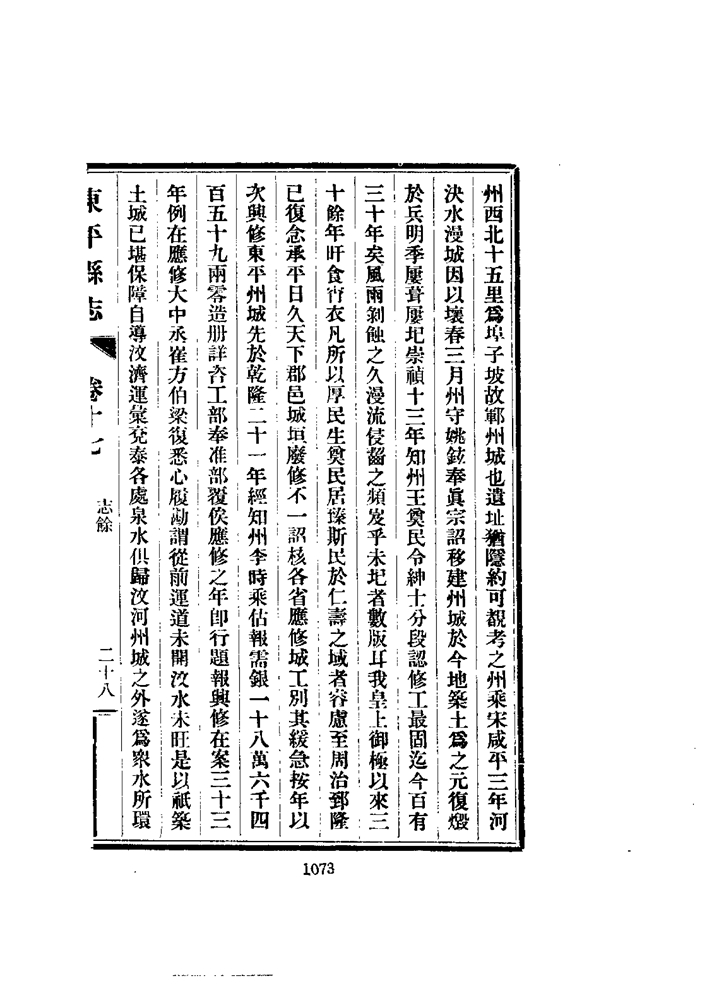 州西北十五里爲埠子坡故鄆州城也遺址猶隱約可覩考之州乘宋咸平三年河
決水漫城因以壞春三月州守姚鉉奉眞宗詔移建州城於今地築土爲之元復燬
於兵明季屢葺屢圯崇禎十三年知州王奠民令紳士分段認修工最固迄今百有
三十年矣風雨剝蝕之久漫流侵齧之頻岌乎未圯者數版耳我皇上御極以來三
十餘年旰食宵衣凡所以厚民生奠民居臻斯民於仁壽之域者睿慮至周治郅隆
已復念承平日久天下郡邑城垣廢修不一詔核各省應修城工別其緩急按年以
次興修東平州城先於乾隆二十一年經知州李時乘估報需銀一十八萬六千四
百五十九兩零造册詳咨工部奉准部覆俟應修之年卽行題報興修在案三十三
年例在應修大中丞崔方伯梁復悉心履勘謂從前運道未開汶水未旺是以祇築
土城已堪保障自導汶濟運彙兗泰各處泉水俱歸汶河州城之外遂爲衆水所環
東平縣志
卷十七
志餘
二十八
1073